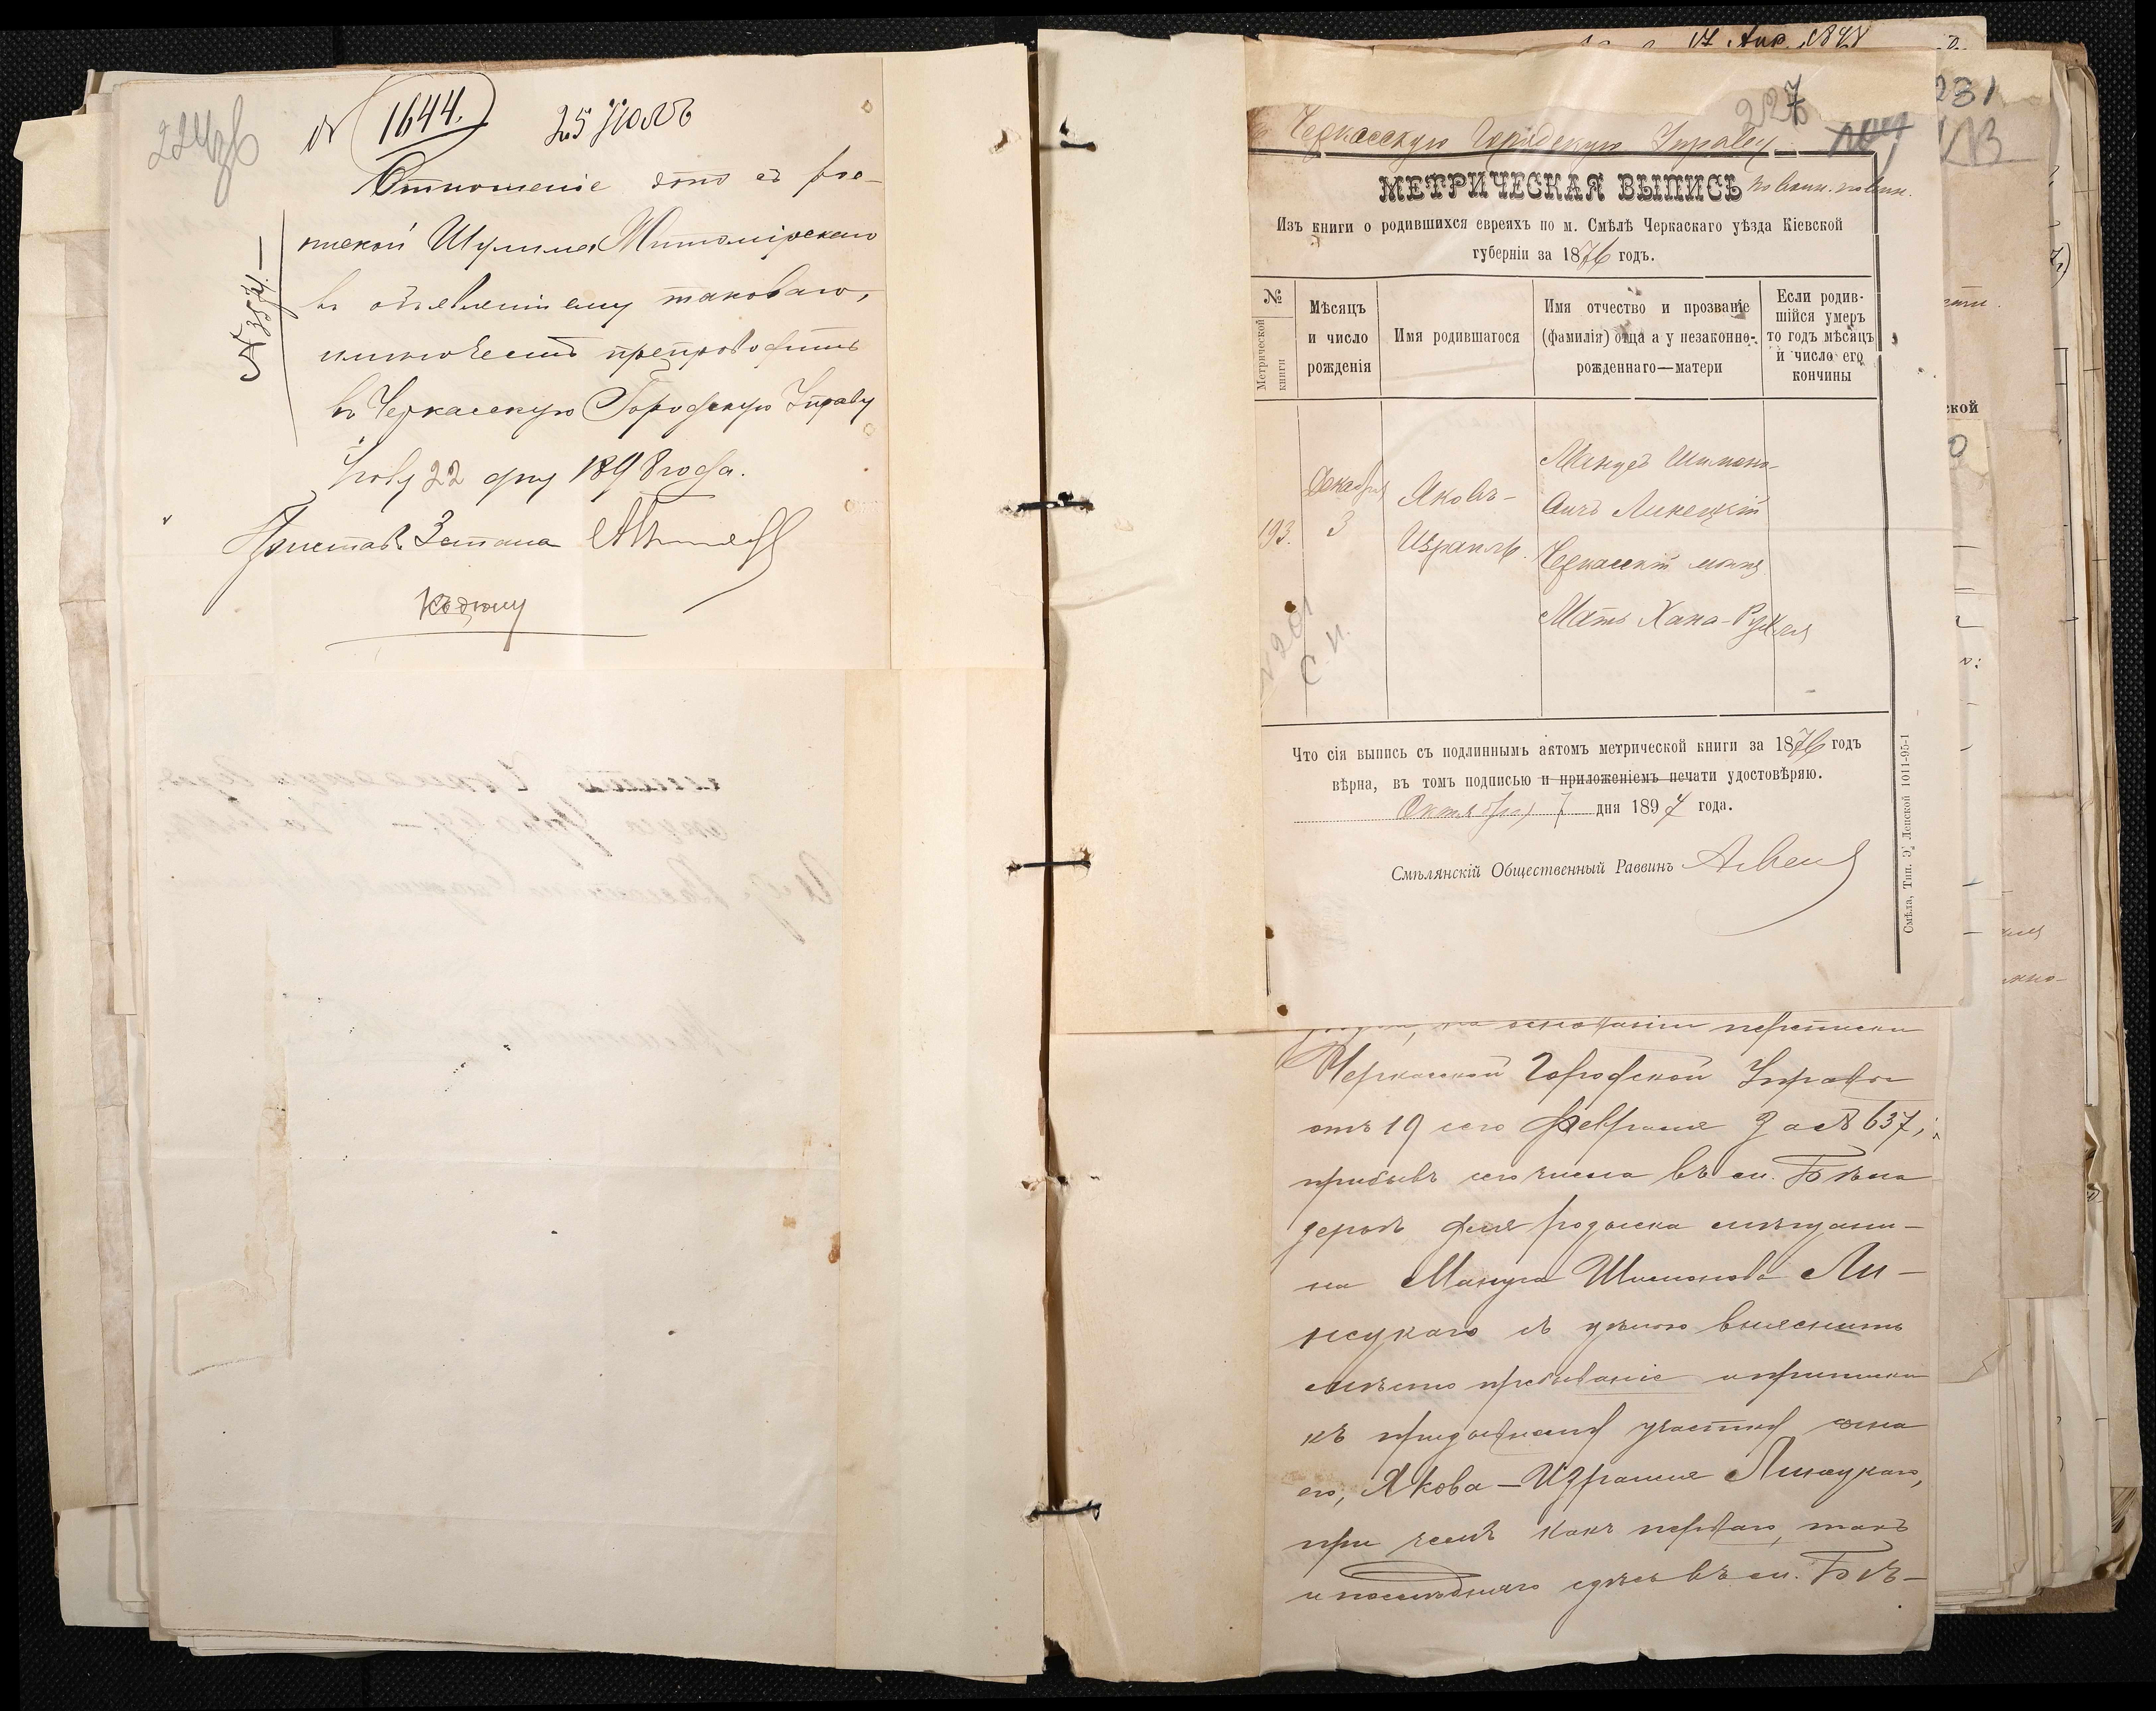 224об
№ 1644. 25 Юля
Отношеніе это съ рос-
пиской Шулима Житомірскаго
въ объявленіи ему таковаго,
имѣю честь препроводить
въ Черкасскую Городскую Управу
22 дня 1898 года.
Приставъ 3 стана
Къ дѣлу
№ 3574.
17 Апр. 1898
227
231
Въ Черкасскую Городскую Управу
по воин. повин.
МЕТРИЧЕСКАЯ ВЫПИСЬ
Изъ книги о родившихся евреяхъ по м. Смѣлѣ Черкаскаго уѣзда Кіевской
губерніи за 1876 годъ.
№ Метрической книги
Мѣсяцъ и число рожденія
Имя родившагося
Имя отчество и прозваніе (фамилія) отца а у незаконно-рожденнаго—матери
Если родив-шійся умеръ то годъ мѣсяцъ и число его кончины
193.
Декабря 3
Яковъ-
Израиль.
Манусъ Шимоно-
вичъ Линецкій
Черкасскій мѣщ
Мать Хана-Рухля
№ 201
С. И.
Что сія выпись съ подлиннымъ актомъ метрической книги за 1876 годъ
вѣрна, въ томъ подписью и приложеніемъ печати удостовѣряю.
Октября 7 дня 1897 года.
Смѣлянскій Общественный Раввинъ
Смѣла, Тип. Э. Лепской 1011-95-1
на основаніи переписки
Черкасской Городской Управы
отъ 19 сего Февраля за № 637,
прибывъ сего числа въ м.
для розыска мѣщани-
на Мануса Шимонова Ли-
нецкаго съ цѣлью выяснить
мѣсто пребываніе и приписки
къ призывному участку сына
его, Якова-Израиля Линецкаго,
при чемъ какъ перваго, такъ
и послѣдняго здѣсь въ м. Бѣ-